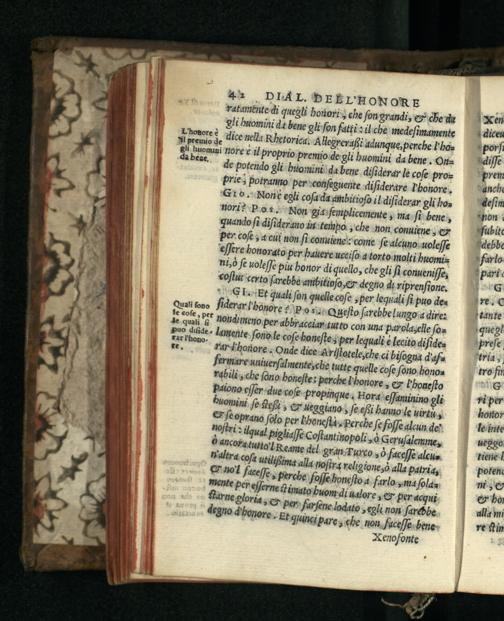 42 DIAL. DELL'HONORE
ratamente di quegli honori, che son grandi, & che da
gli huomini da bene gli son fatti: il che medesimamente
dice nella Rhetorica. Allegrerassi adunque, perche l'ho-
nore è il proprio premio de gli huomini da bene. On-
de potendo gli huomini da bene disiderar le cose pro-
prie, potranno per conseguente disiderare l'honore.
GIO. Non è egli cosa da ambitioso il disiderar gli ho-
nori? POS. Non già semplicemente, ma sì bene,
quando si disiderano in tempo, che non conuiene, &
per cose, a cui non si conuiene: come se alcuno uolesse
essere honorato per hauere ucciso a torto molti huomi-
ni, ò se uolesse piu honor di quello, che gli si conuenisse,
costui certo sarebbe ambitioso, & degno di riprensione.
GI. Et quali son quelle cose, per lequali si puo de-
siderar l'honore? POS. Questo sarebbe lungo a dire:
nondimeno per abbracciar tutto con una parola, elle so-
lamente sono le cose honeste, per lequali è lecito diside-
rar l'honore. Onde dice Aristotele, che ci bisogna d'af-
fermare uniuersalmente, che tutte quelle cose sono hono-
rabili, che sono honeste: perche l'honore, & l'honesto
paiono esser due cose propinque. Hora essaminino gli
huomini se stessi, & ueggiano, se essi hanno le uirtù,
& se oprano solo per l'honesto. Perche se fosse alcun de'
nostri: ilqual pigliasse Costantinopoli, ò Gerusalemme,
ò ancora tutto'l Reame del gran Turco, ò facesse alcu-
n'altra cosa utilissima alla nostra religione, ò alla patria,
& no'l facesse, perche fosse honesto a farlo, ma sola-
mente per esserne stimato huom di ualore, & per acqui
starne gloria, & per farsene lodato, egli non sarebbe
degno d'honore. Et quinci pare, che non facesse bene
Xenofonte
L'honore è
il premio de
gli huomini
da bene.
Quali sono
le cose, per
le quali si
puo diside-
rar l'hono-
re.